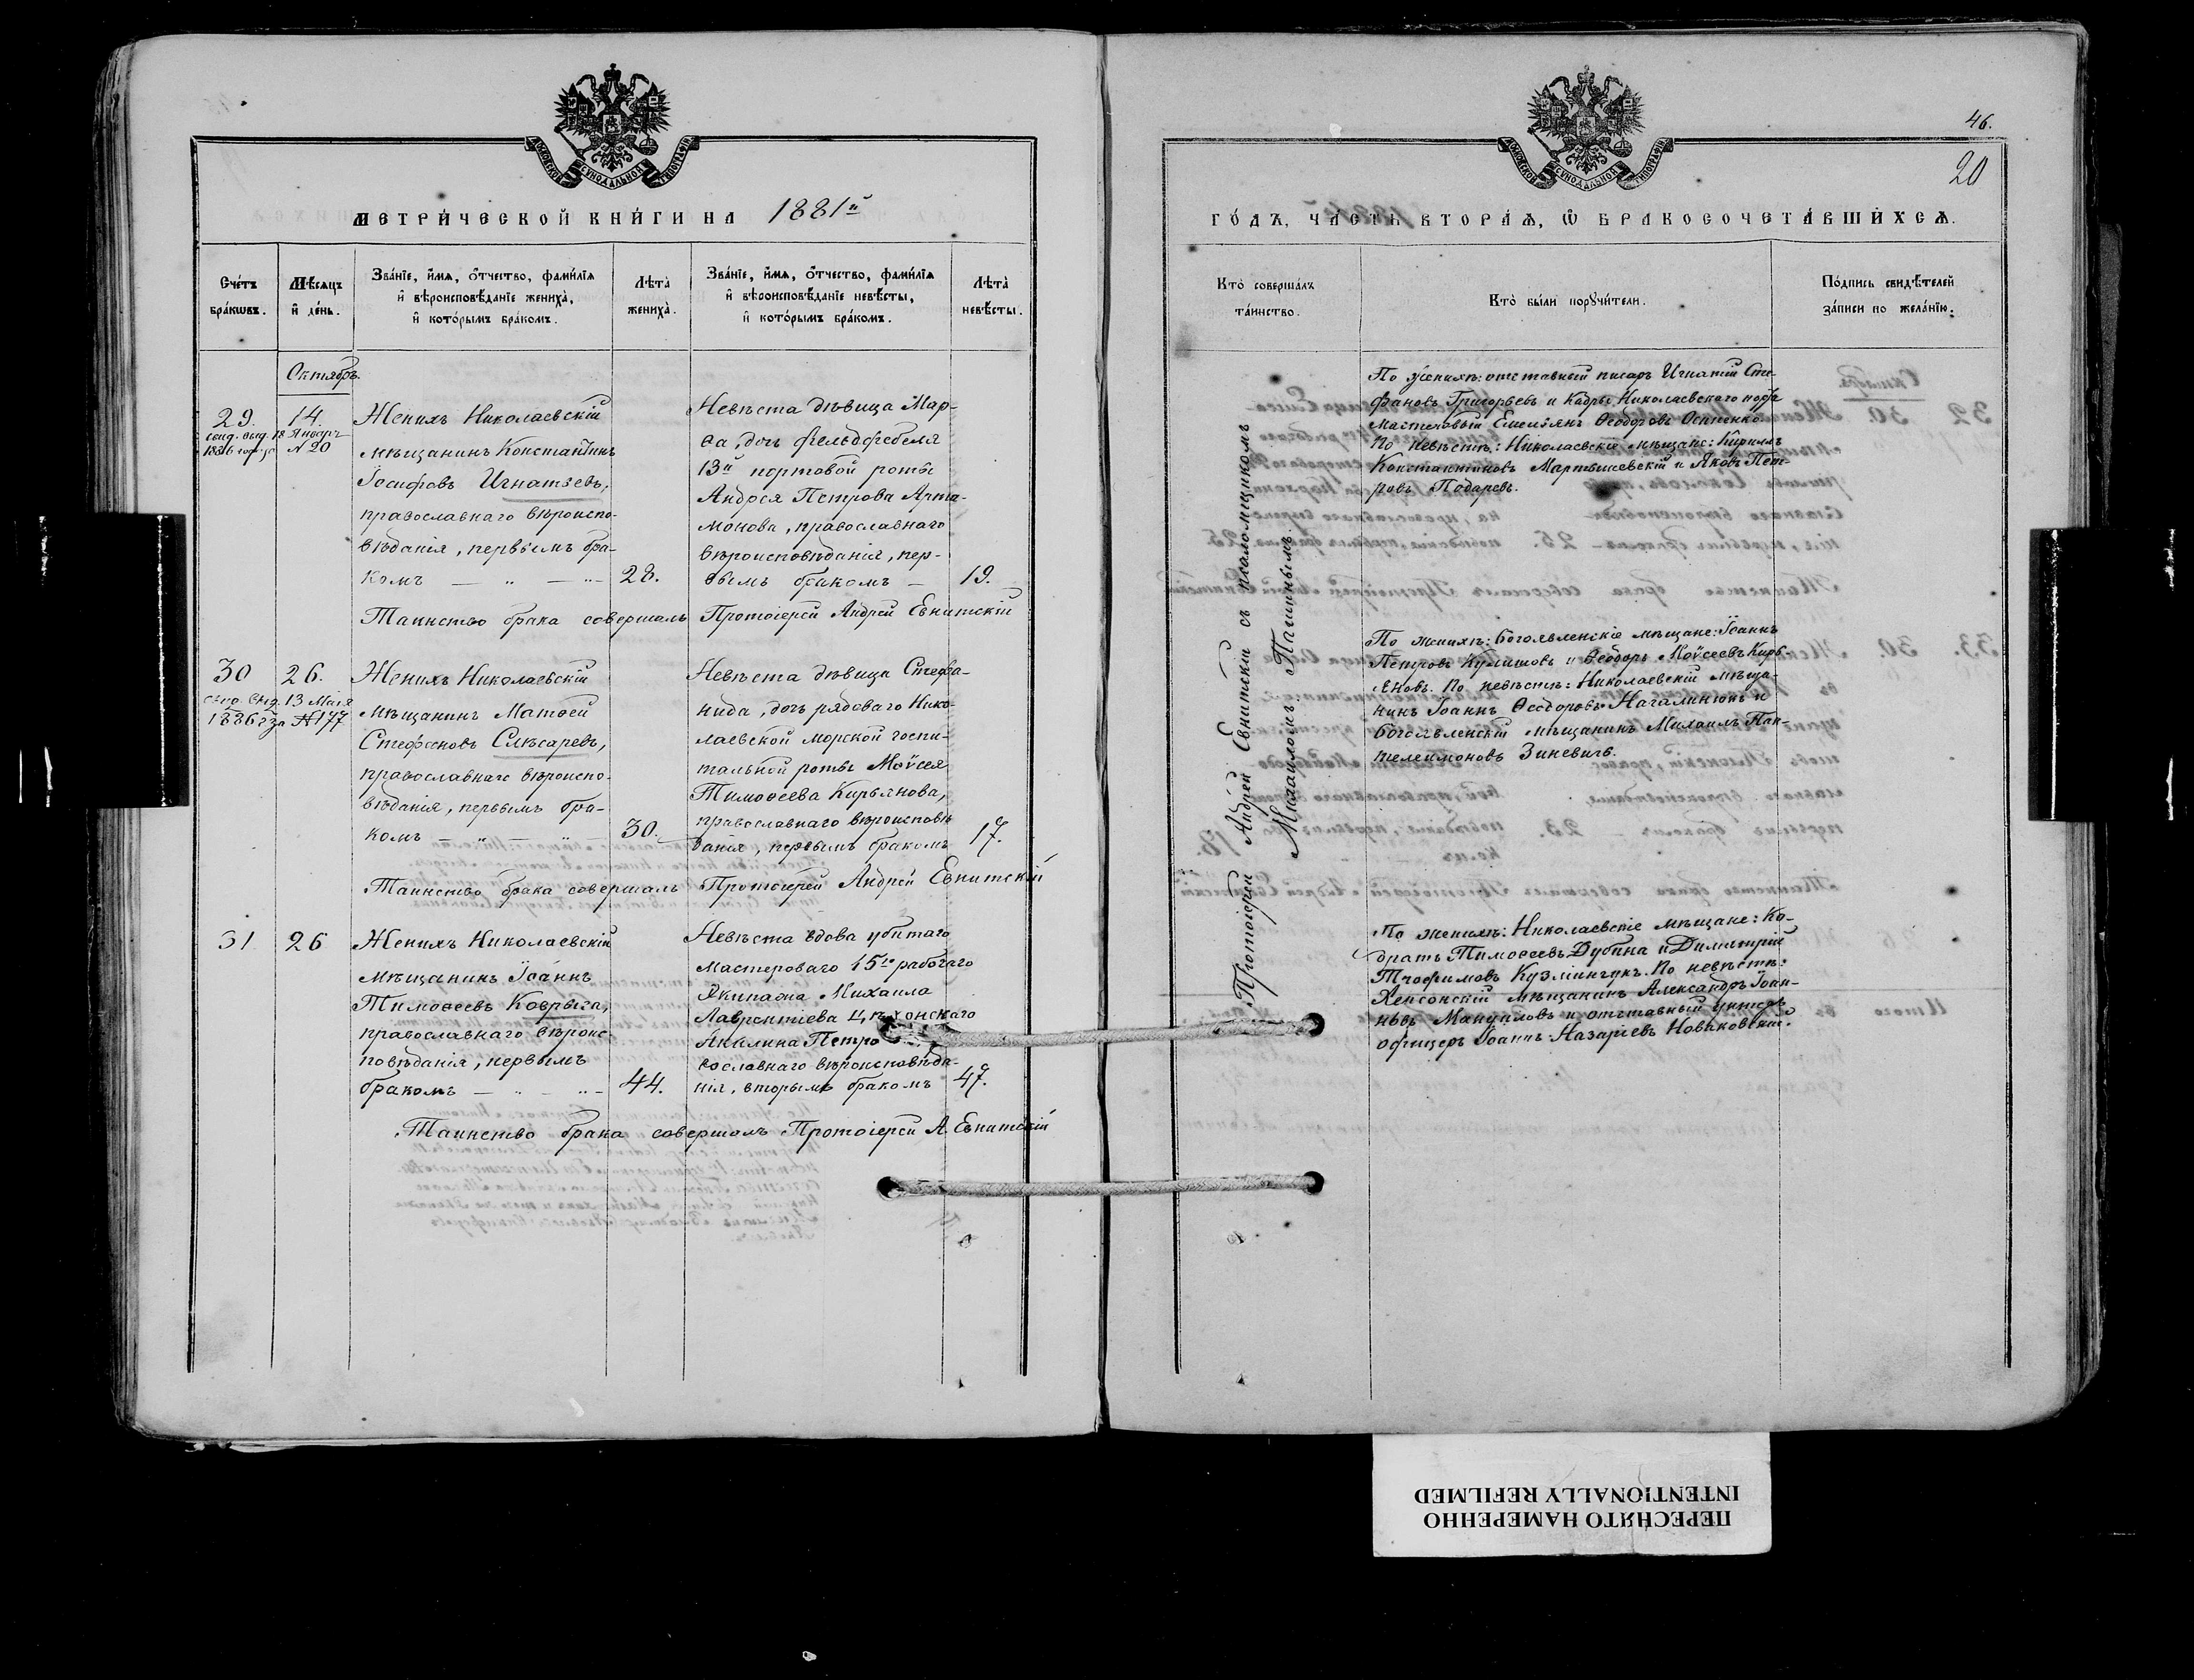 МЕТРИ́ЧЕСКОЙ КНИ́ГИ НА 1881й
Сче́тъ бра́кѡвъ.
Мѣ́сяцъ и҆ де́нь.
Зва́нїе, и҆́мя, ѻ҆́тчество, фами́лїя и҆ вѣроисповѣ́данїе жениха̀, и҆ кото́рымъ бра́комъ.
Лѣта̀ жениха̀.
Зва́нїе, и҆́мя, ѻ҆́тчество, фами́лїя и҆ вѣроисповѣ́данїе невѣ́сты, и҆ кото́рымъ бра́комъ.
Лѣта̀ невѣ́сты.
Октябрь.
29.
14.
свид. выд. 18 Январ
1886 года за № 20
Женихъ Николаевскій
мѣщанинъ Константинъ
Іосифовъ Игнатьевъ,
православнаго вѣроиспо-
вѣданія, первымъ бра-
комъ — „ — „ —
28.
Невѣста дѣвица Мар-
ѳа, дочь фельдфебеля
13й портовой роты
Андрея Петрова Арта-
монова, православнаго
вѣроисповѣданія, пер-
вымъ бракомъ —
19.
Таинство брака совершалъ Протоіерей Андрей Евнитскій
30
26.
свид. выд. 13 Мая
1886 г за № 177
Женихъ Николаевскій
мѣщанинъ Матѳей
Стефановъ Слѣсаревъ,
православнаго вѣроиспо-
вѣданія, первымъ бра-
комъ — „ — „ —
30.
Невѣста дѣвица Стефа-
нида, дочь рядоваго Нико-
лаевской морской госпи-
тальной роты Моѵсея
Тимоѳеева Кирьянова,
православнаго вѣроисповѣ
данія, первымъ бракомъ
17.
Таинство брака совершалъ Протоіерей Андрей Евнитскій
31
26
Женихъ Николаевскій
мѣщанинъ Іоаннъ
Тимоѳеевъ Коврыга,
православнаго вѣроис-
повѣданія, первымъ
бракомъ — „ — „ —
44.
Невѣста вдова убитаго
мастероваго 15го рабочаго
Экипажа Михаила
Лаврентіева
Акилина Петро
вославнаго вѣроисповѣда-
нія, вторымъ бракомъ
47.
Таинство брака совершалъ Протоіерей А. Евнитскій
46.
20
ГО́ДЪ, ЧА́СТЬ ВТОРА́Я, Ѡ҆ БРАКОСОЧЕТА́ВШИХСЯ.
Кто̀ соверша́лъ та́инство.
Кто̀ бы́ли порꙋчи́тели.
По́дпись свидѣ́телей за́писи по жела́нїю.
Протоіерей Андрей Евнитскій съ псаломщикомъ
Михаиломъ Пашинымъ
По женихѣ: отставный писарь Игнатій Сте-
фановъ Григорьевъ и Кадры Николаевскаго порта
мастеровый Емельянъ Ѳеодоровъ Остенко.
По невѣстѣ: Николаевскіе мѣщане: Кириллъ
Константиновъ Мартышевскій и Яковъ Пет-
ровъ Подаревъ.
По женихѣ: Богоявленскіе мѣщане: Іоаннъ
Петровъ Кулишовъ и Ѳеодоръ Моѵсеевъ Кирь
яновъ. По невѣстѣ: Николаевскій мѣща-
нинъ Іоаннъ Ѳеодоровъ Нагалинюкъ и
Богоявленскій мѣщанинъ Михаилъ Пан-
телеимоновъ Зиневичъ.
По женихѣ: Николаевскіе мѣщане: Ко-
дратъ Тимоѳеевъ Дубина и Димитрій
Трофимовъ Кузминчукъ. По невѣстѣ:
Херсонскій мѣщанинъ Александръ Іоан-
новъ Мануиловъ и отставный унтеръ
офицеръ Іоаннъ Назаріевъ Новаковскій.
ПЕРЕСНЯТО НАМЕРЕННО
INTENTIONALLY REFILMED